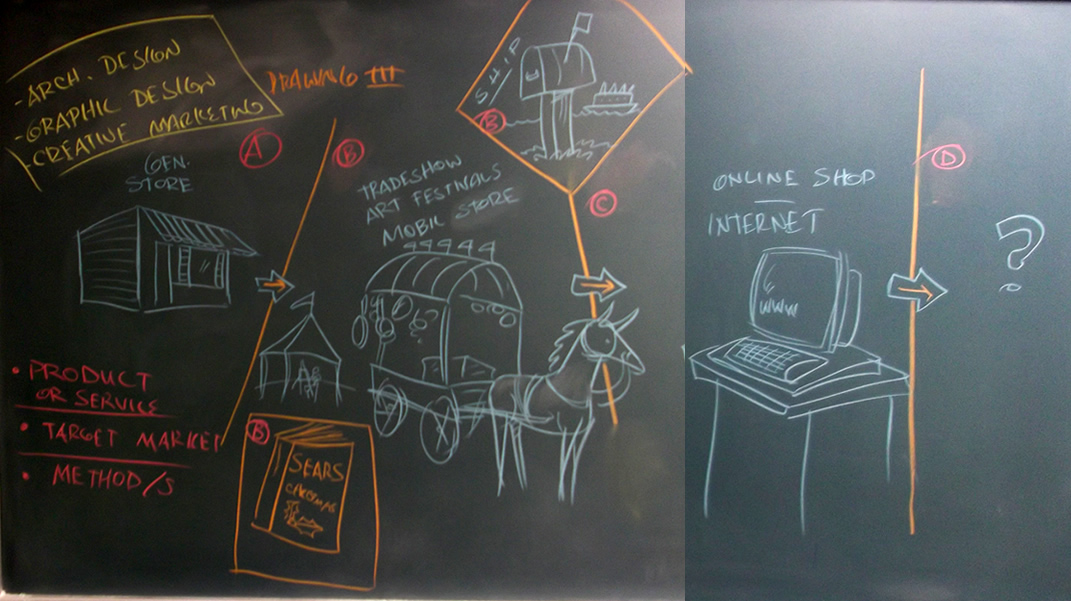 - ARCH. DESIGN
- GRAPHIC DESIGN
- CREATIVE MARKETING
DRAWING III
A
B
GEN.
STORE
TRADESHOW
ART FESTIVALS
MOBIL STORE
SHIP
B
C
ONLINE SHOP
—
INTERNET
D
WWW
?
• PRODUCT
OR SERVICE
• TARGET MARKET
• METHOD/S
B
SEARS